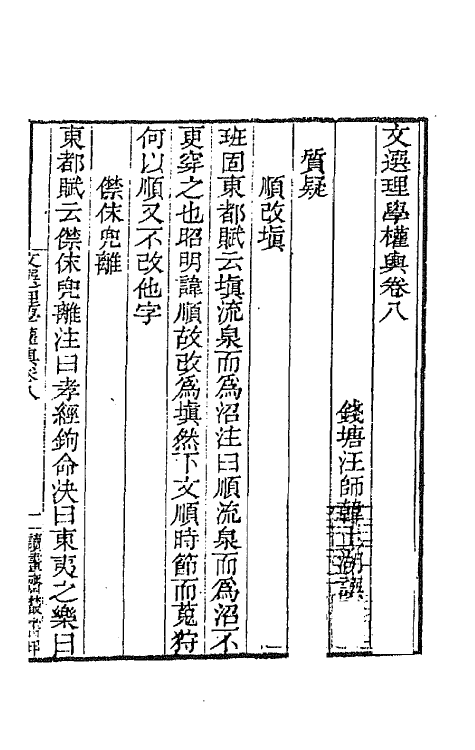 文選理學權輿卷八
錢塘汪師韓上湖撰
質疑
順改塡
班固東都賦云塡流泉而爲沼注曰順流泉而爲沼不
更穿之也昭明諱順故改爲塡然下文順時節而蒐狩
何以順又不改他字
傑佅兜離
東都賦云傑佅兜離注曰孝經鉤命决曰東夷之樂曰
文選理學權輿卷八
一
讀畫齋叢書